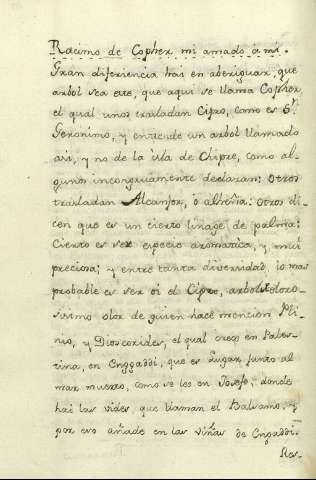 Racimo de Copher mi amado à mi.
Gran diferiencia hai en aberiguar, que
arbol sea este, que aqui se llama Copher,
el qual unos trasladan Cipro, como es Sn
Geronimo, y entiende un arbol llamado
asi, y no de la isla de Chipre, como al-
gunos incongruamente declaran: Otros
trasladan Alcanfor, ó alheña: Otros di-
cen que es un cierto linage de palma:
Cierto es ser especie aromatica, y mui
preciosa; y entre tanta diversidad, lo mas
probable es ser el Cipro, arbol oloro-
sissimo olor de quien hace mencion Pli-
nio, y Dioscorides, el qual crece en Pales-
tina, en Enggaddi, que es lugar junto al
mar muerto, como se lee en Josefo; donde
hai las vides que llaman el Balsamo, y
por eso añade en las viñas de Engaddi.
Res-